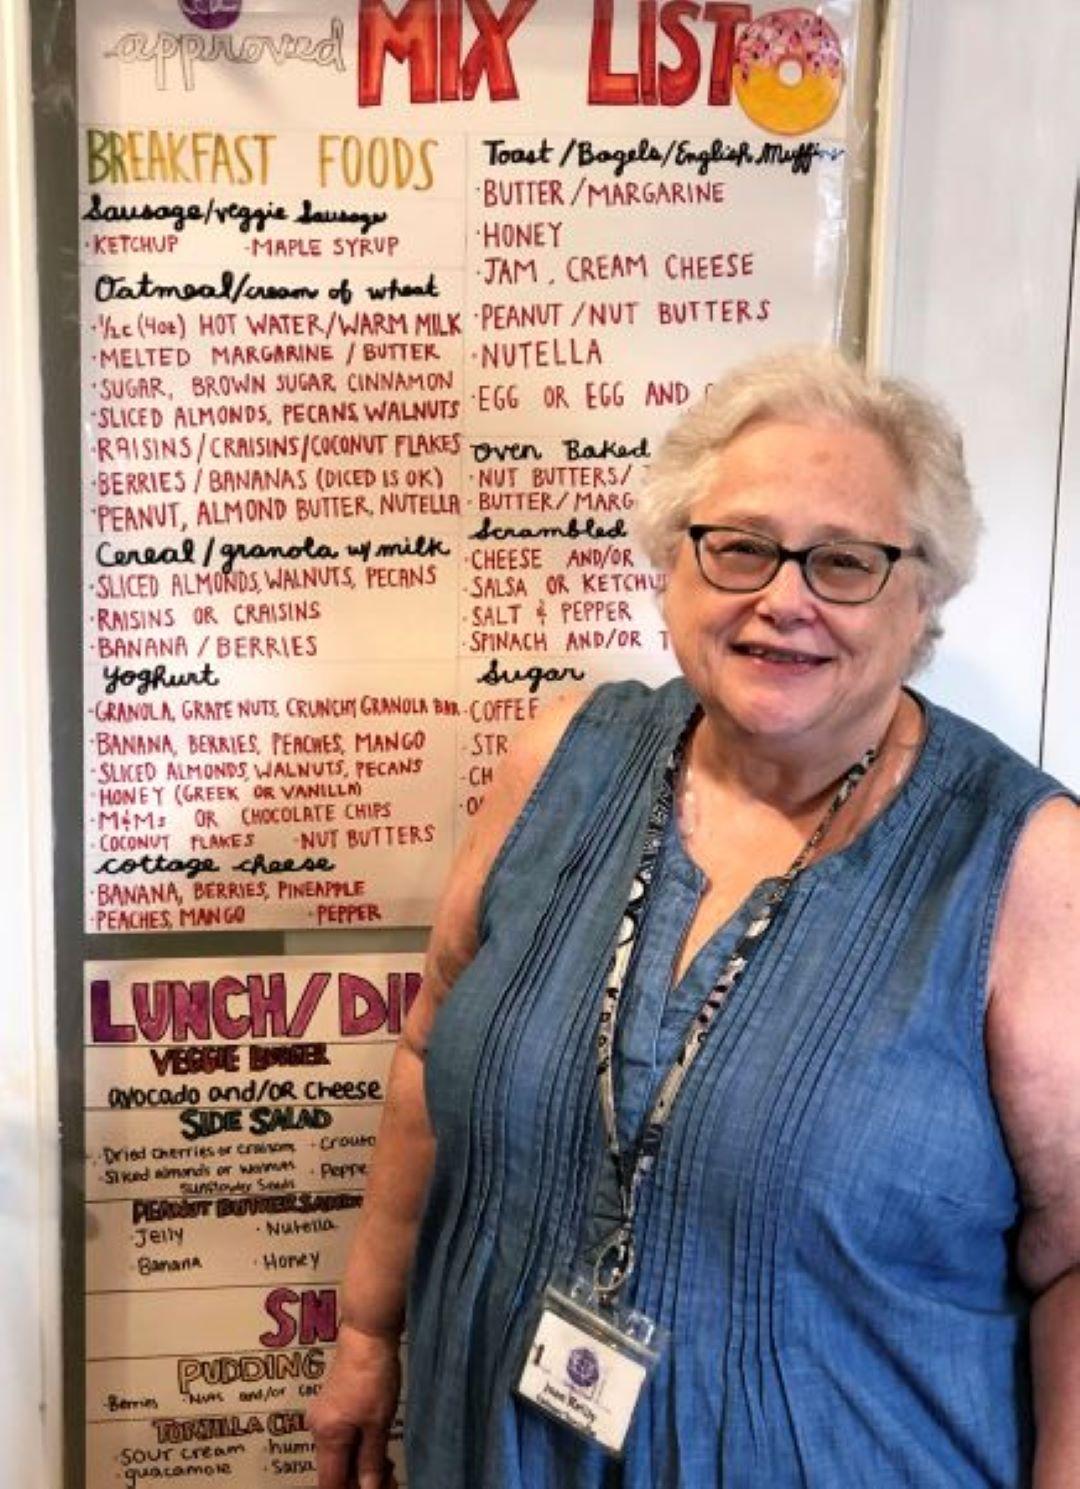 approved MIX LIST
BREAKFAST FOODS
Sausage/veggie Sausage
·KETCHUP -MAPLE SYRUP
Oatmeal/cream of wheat
·1/2c (4oz) HOT WATER/WARM MILK
·MELTED MARGARINE / BUTTER
·SUGAR, BROWN SUGAR, CINNAMON
·SLICED ALMONDS, PECANS, WALNUTS
·RAISINS/CRAISINS/COCONUT FLAKES
·BERRIES / BANANAS (DICED IS OK)
·PEANUT, ALMOND BUTTER, NUTELLA
Cereal/granola w/milk
·SLICED ALMONDS, WALNUTS, PECANS
·RAISINS OR CRAISINS
·BANANA / BERRIES
Yoghurt
·GRANOLA, GRAPE NUTS, CRUNCHY GRANOLA BAR
·BANANA, BERRIES, PEACHES, MANGO
·SLICED ALMONDS, WALNUTS, PECANS
·HONEY (GREEK OR VANILLA)
·M&Ms OR CHOCOLATE CHIPS
·COCONUT FLAKES ·NUT BUTTERS
cottage cheese
·BANANA, BERRIES, PINEAPPLE
·PEACHES, MANGO ·PEPPER
Toast/Bagels/English Muffins
·BUTTER/MARGARINE
·HONEY
·JAM, CREAM CHEESE
·PEANUT/NUT BUTTERS
·NUTELLA
·EGG OR EGG AND
oven Baked
·NUT BUTTERS/
·BUTTER/MARG
Scrambled
·CHEESE AND/OR
·SALSA OR KETCHU
·SALT & PEPPER
·SPINACH AND/OR T
Sugar
·COFFEE
·STR
·CH
LUNCH/DI
VEGGIE BURGER
avocado and/OR cheese
SIDE SALAD
·Dried cherries or craisins ·Crouto
·Sliced almonds or walnuts ·Peppe
sunflower Seeds
PEANUT BUTTER SAND
·Jelly ·Nutella
·Banana ·Honey
SN
PUDDING
·Berries ·Nuts and/or coc
TORTILLA CHI
·sour cream ·humm
·guacamole ·Salsa
1